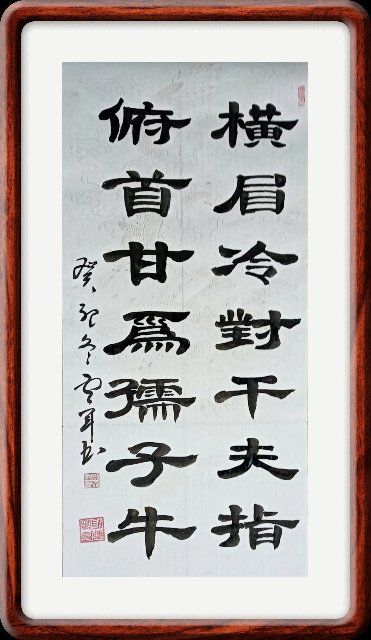 橫眉冷對千夫指
俯首甘為孺子牛
癸卯冬雲軍书